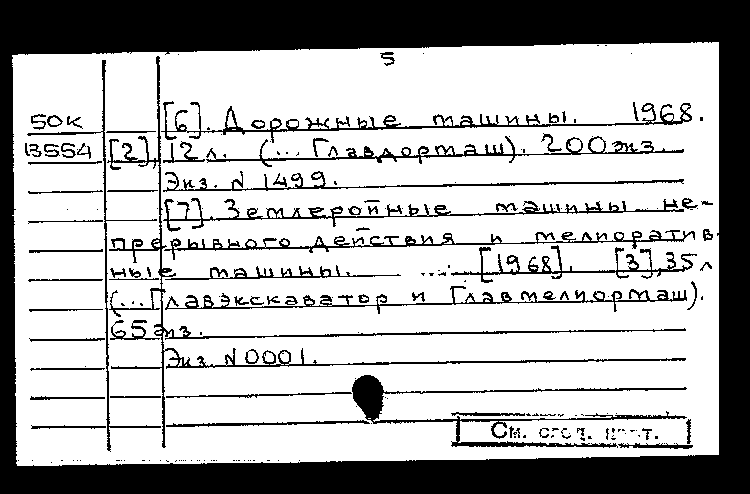 5
50К [6]. Дорожные машины. 1968.
13554 [2], 12 л. (... Главдормаш). 200 экз.
Экз. N 1499.
[7]. Землеройные машины не-
прерывного действия и мелиоратив-
ные машины. ... [1968]. [3], 35 л
(... Главэкскаватор и Главмелиормаш).
65 экз.
Экз. N 0001.
См. след. карт.